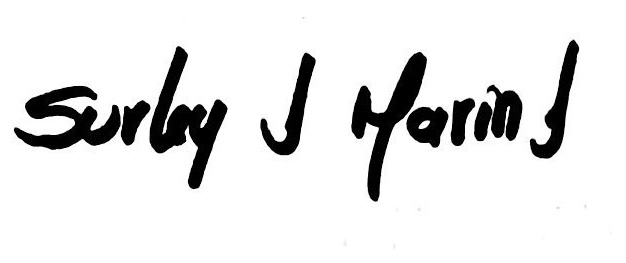 Surley J Marin J